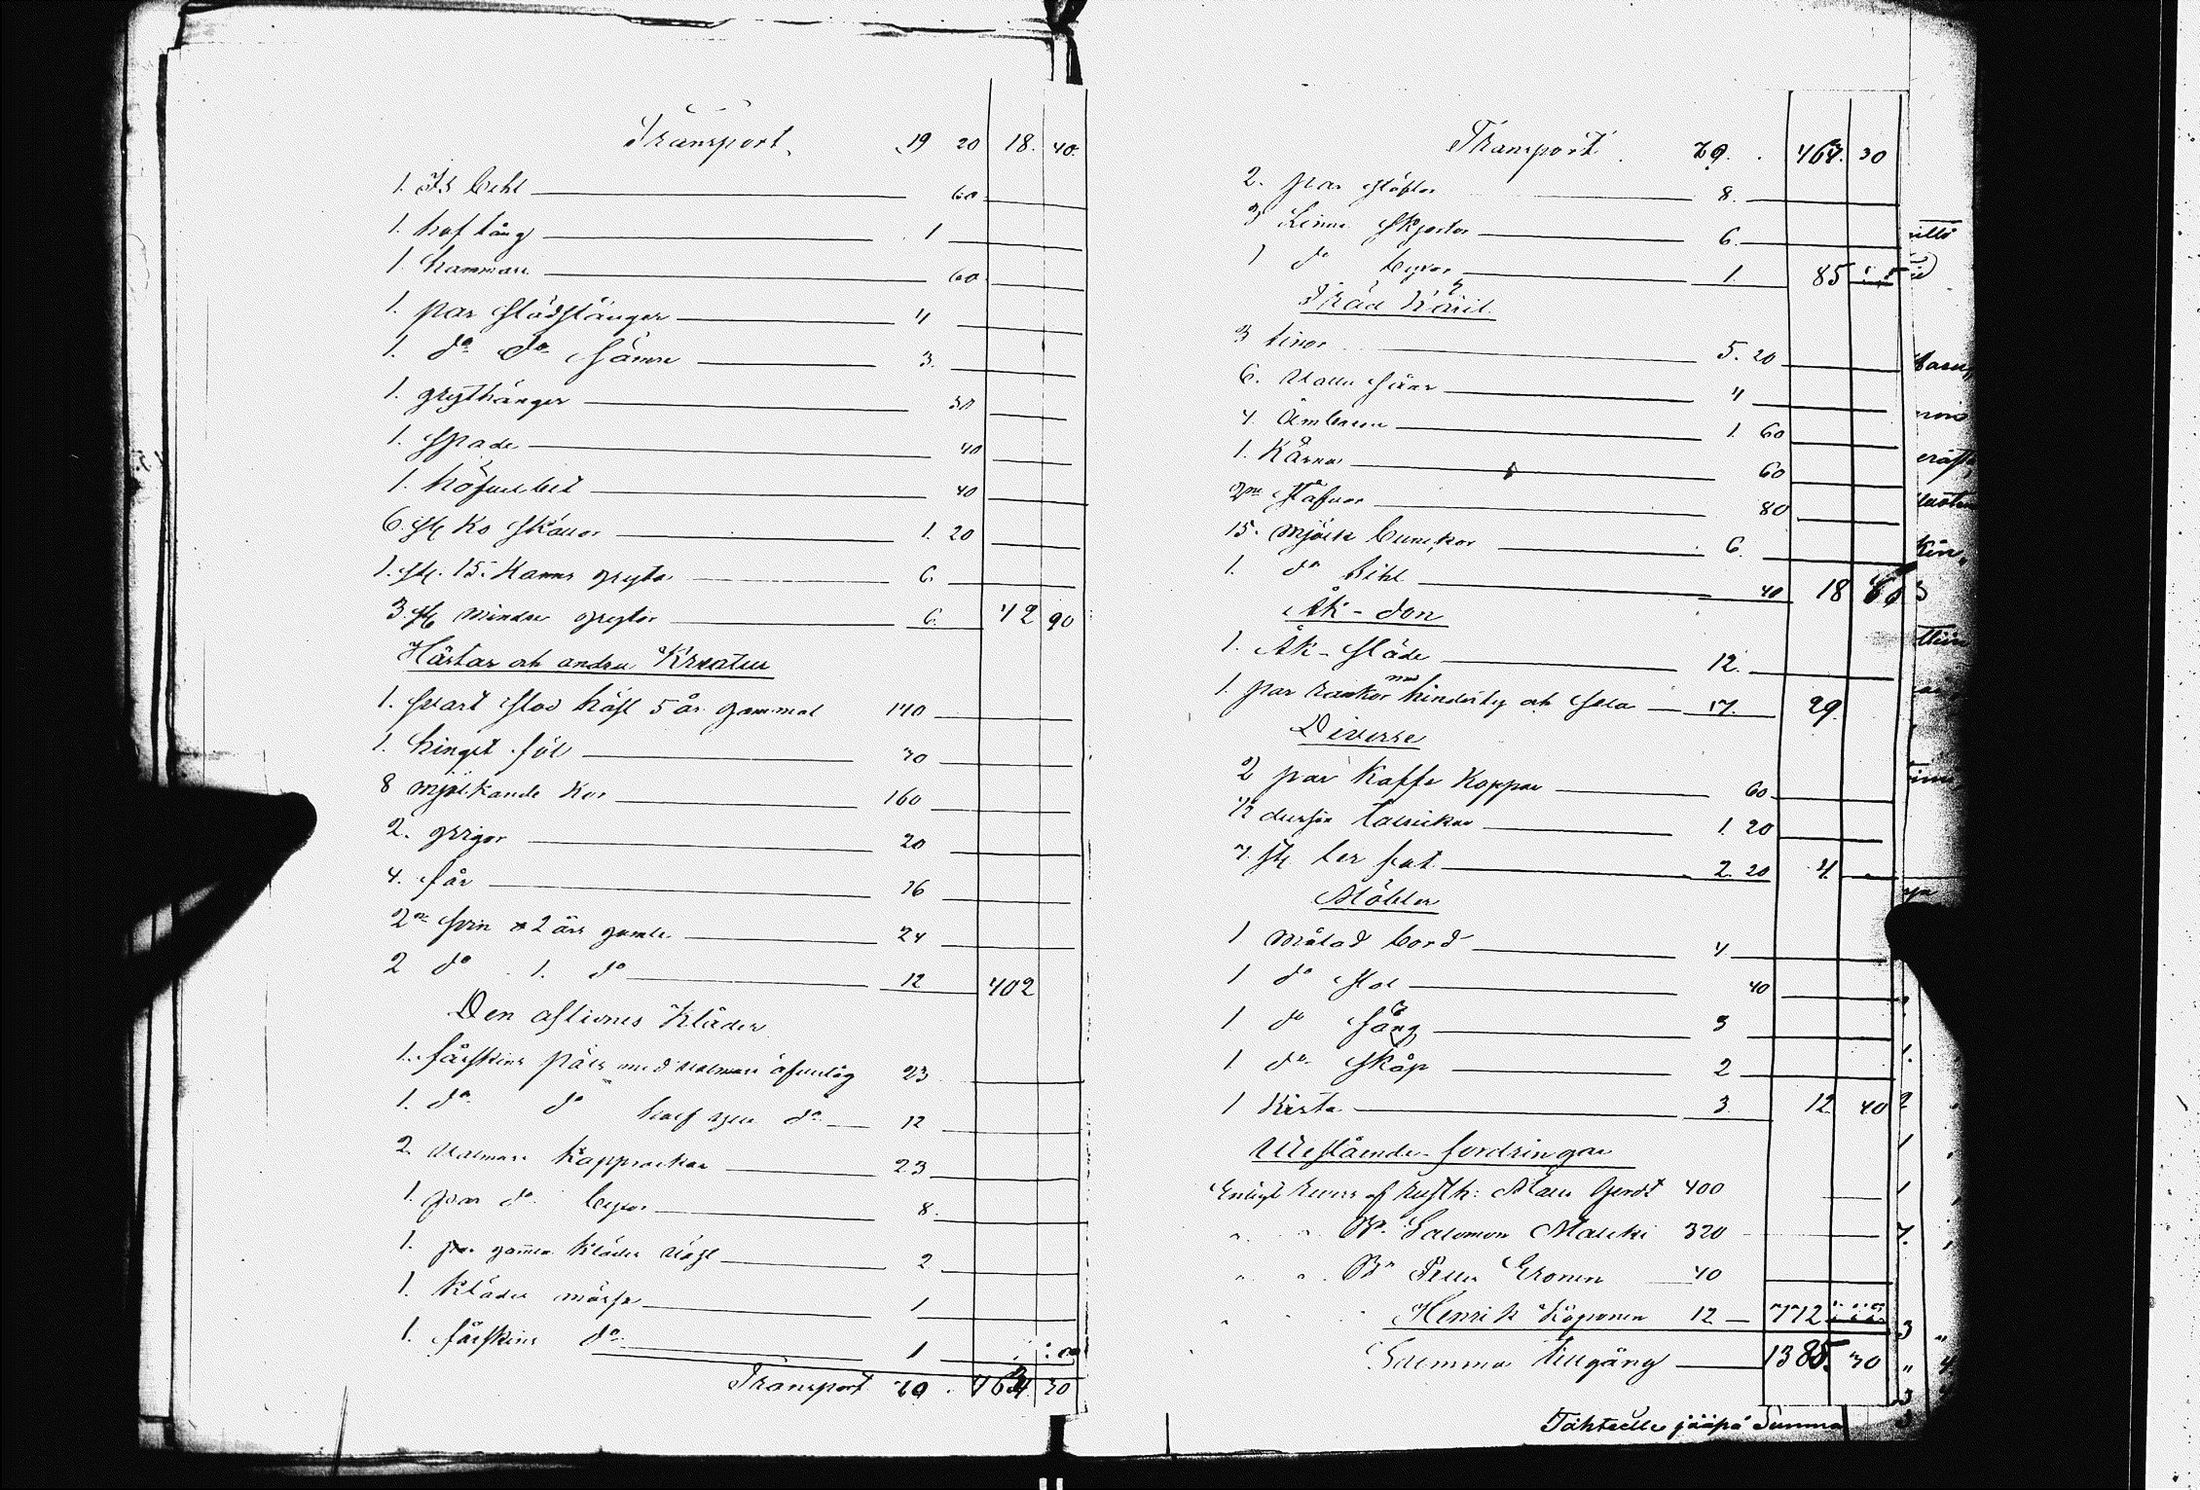 Transport 19 20 18. 40.
1. Is bihl 60
1. hof tång 1
1. hammare 60
1. par slädstänger 4
1. do do sämre 3.
1. grythänger 30
1. Spade 40
1. höfvelbet 40
6. st Ko skällor 1. 20
1. st. 15. Kanns gryta 6.
3. st mindre grytor 6. 42 90
Hästar och andra Kreatur
1. svart sto häst 5 år gammal 140
1. hingst föl 30
8 mjölkande Kor 160
2. qvigor 20
4. får 16
2ne svin 2 års gamla 24
2 do 1. do 12 402
Den aflidnes Kläder
1. fårskins päls med valmars öfverlag 23
1. do do half ny do 12
2. valmars Kapprockar 23
1. par do byxor 8.
1. gamla Kläder 2
1. Klädes mössa 1
1. fårskins do 1
Transport 70. 463 30
Transport 70. 463. 30
2. par stöflor 8.
3 Linne skjortor 6.
1 do byxor 1. 85
Träd Käril
3 tinor 5. 20
6. såar 4
4. Ämbaren 1. 60
1. Kärna 60
2ne stäfvor 80
15. mjölk bunckor 6.
1. do sihl 40 18 60
Åk-don
1. Åk-släde 12.
1. par kärror med hindertyg och sela 17. 29.
Diverse
2 par Kaffe Koppar 60
1/2 dussin talrickar 1. 20
7. st ler fat 2. 20 4.
Möbler
1 målad bord 4
1 do stol 40
1 do säng 3
1 do skåp 2
1 Kista 3. 12. 40
Utestående fordringar
Enligt revers af rusth: Mats 400
" " Bn Salomon 320
" " Bn Petter Eronen 40
Henrik Köponen 12 772
Summa tillgång 1385. 30
Tähteelle jääpi Summa